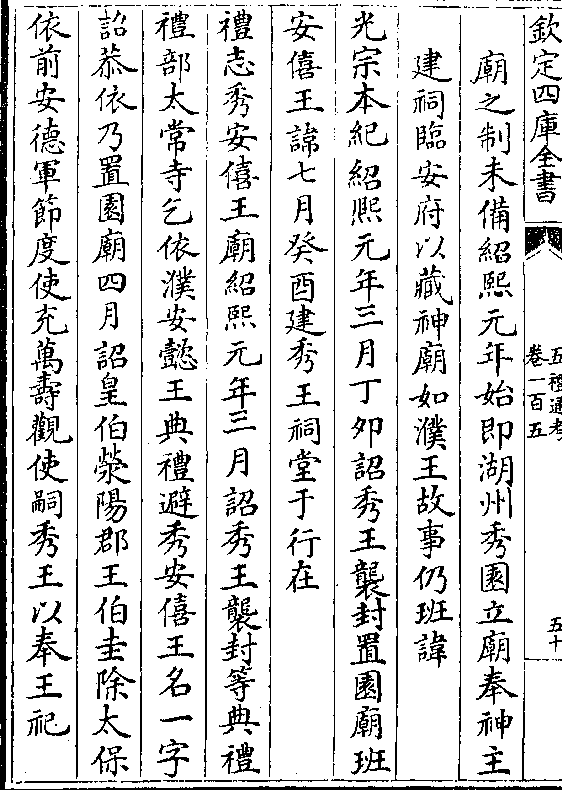 欽定四庫全書
五禮通考
卷一百五
五十
廟之制未備紹熙元年始即湖州秀園立廟奉神主
建祠臨安府以藏神廟如濮王故事仍班諱
光宗本紀紹熙元年三月丁夘詔秀王襲封置園廟班
安僖王諱七月癸酉建秀王祠堂于行在
禮志秀安僖王廟紹熙元年三月詔秀王襲封等典禮
禮部太常寺乞依濮安懿王典禮避秀安僖王名一字
詔恭依乃置園廟四月詔皇伯滎陽郡王伯圭除太保
依前安德軍節度使充萬壽觀使嗣秀王以奉王祀